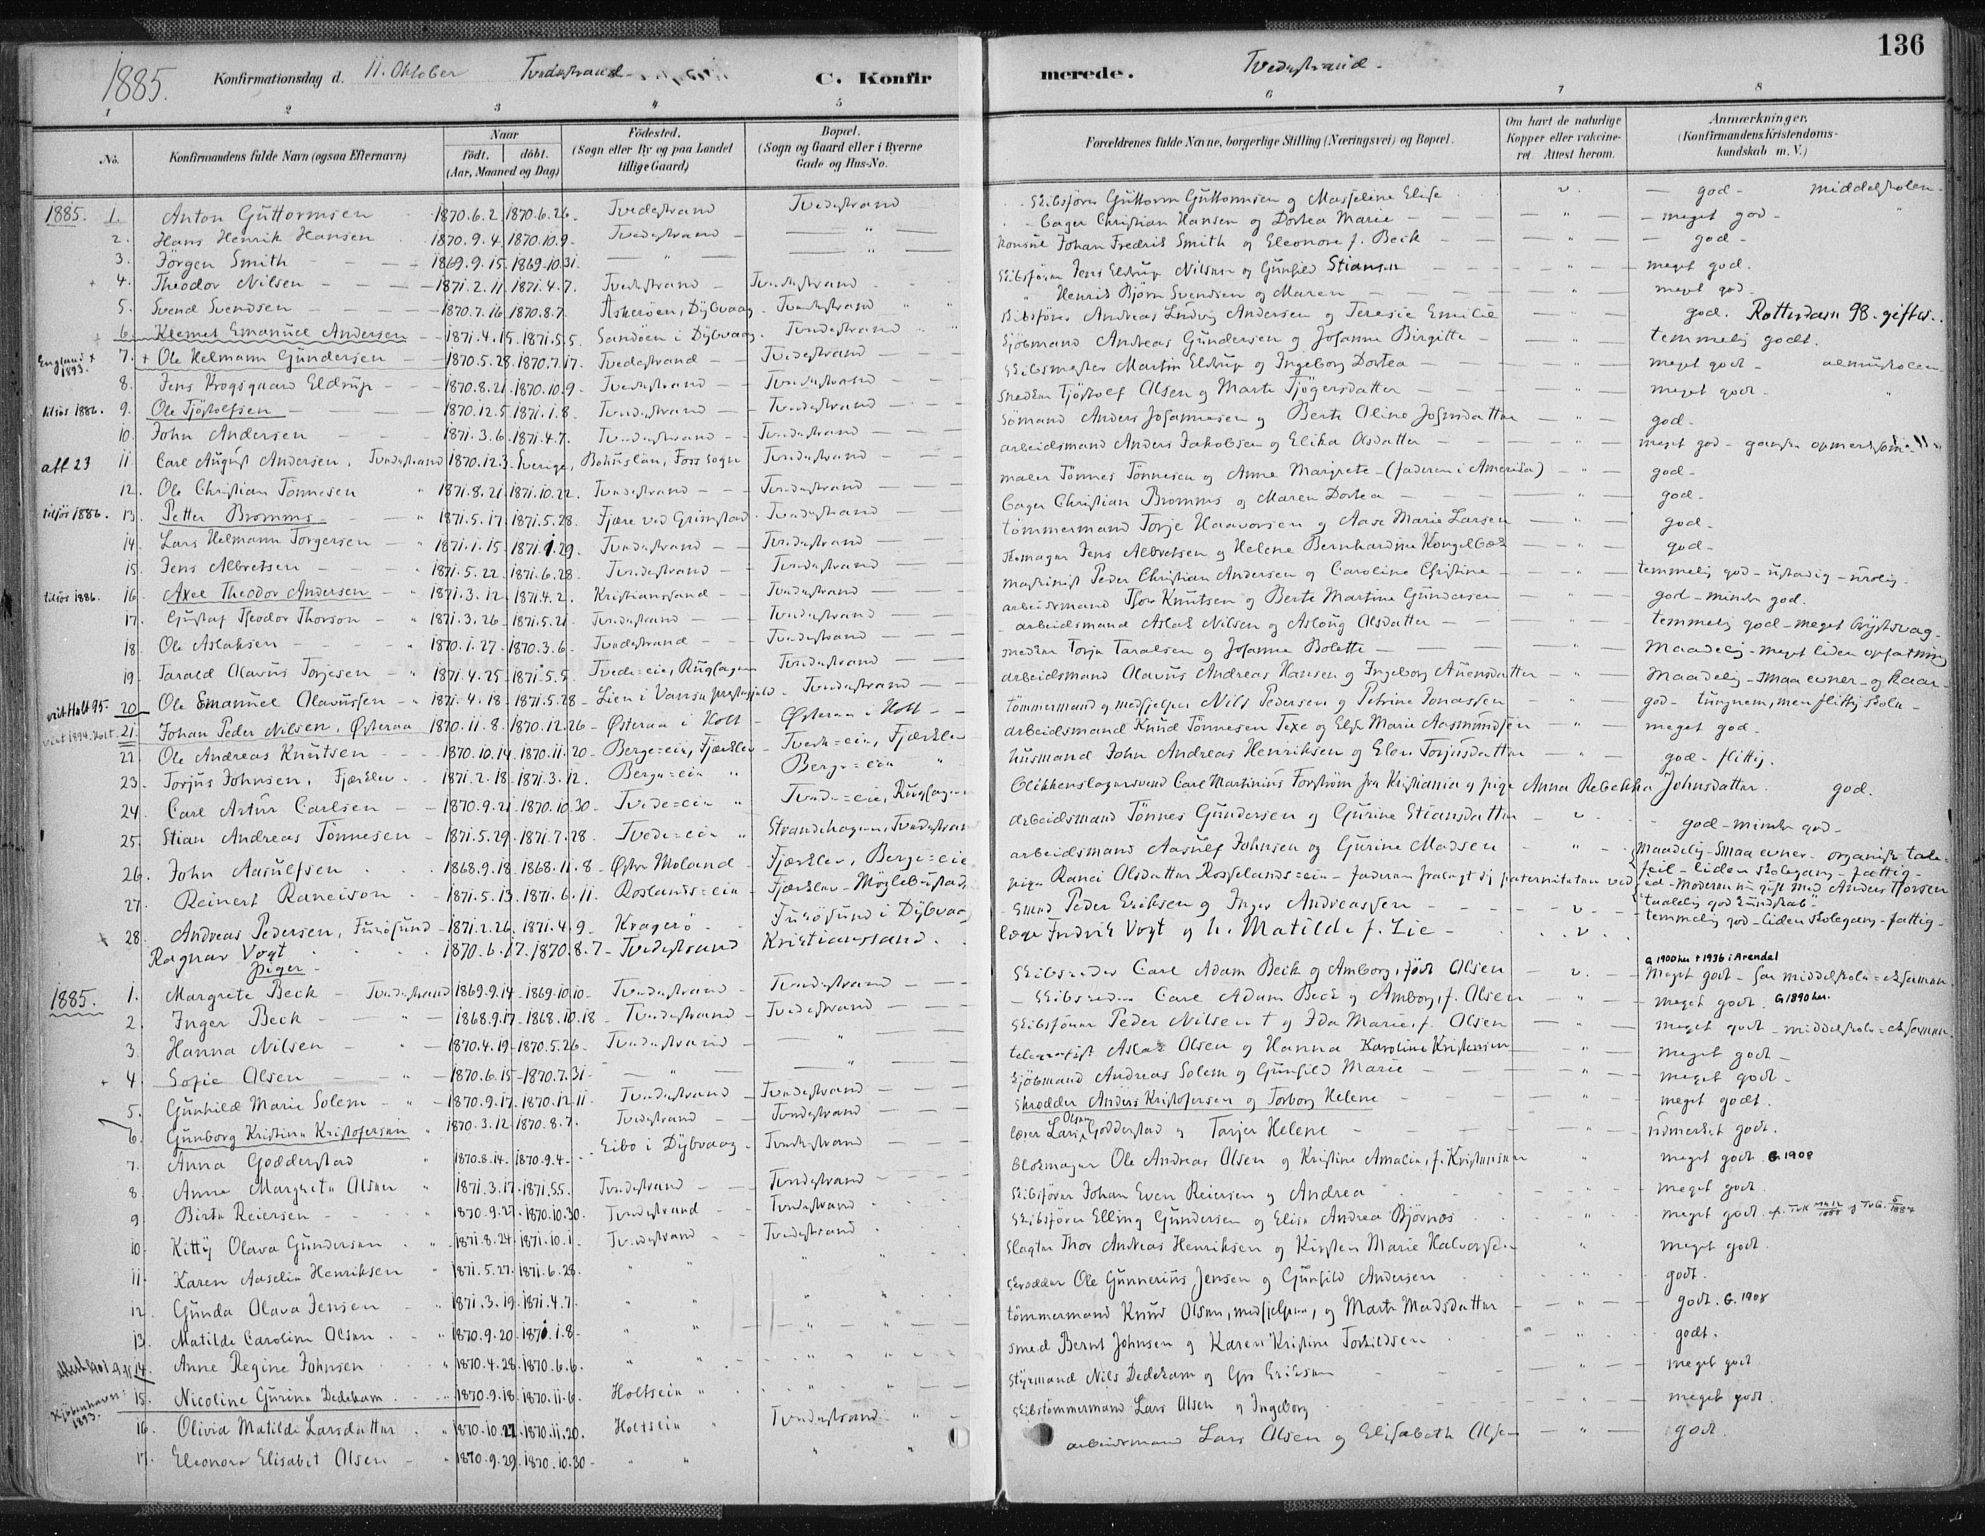 136
1885. Konfirmationsdag d. 11. Oktober Tvedestrand C. Konfirmerede. Tvedestrand.
1 2 3 4 5 6 7 8
No. Konfirmandens fulde Navn (ogsaa Efternavn) Naar födt. döbt. (Aar, Maaned og Dag) Födested. (Sogn eller By og paa Landet tillige Gaard) Bopæl. (Sogn og Gaard eller i Byerne Gade og Hus-No. Forældrenes fulde Navne, borgerlige Stilling (Næringsvei) og Bopæl. Om havt de naturlige Kopper eller vakcineret. Attest herom. Anmærkninger. (Konfirmandens Kristendomskundskab m. V.)
1885. 1. Anton Guttormsen 1870.6.2 1870.6.26 Tvedestrand Tvedestrand Skibsfører Guttorm Guttormsen og Masseline Elise god - middelskolen
2. Hans Henrik Hansen 1870.9.4 1870.10.9 Tvedestrand " Bager Christian Hansen og Dortea Marie " meget god
3. Jörgen Smith 1869.9.15 1869.10.31 " " Konsul Johan Fredrik Smith og Eleonore f. Beck " god
4. Theodor Nilsen 1871.2.11 1871.4.7. Tvedestrand Tvedestrand Skibsfører Jens Eldrup Nilsen og Gunhild Stiansen " meget god.
5. Svend Svendsen 1870.7.16 1870.8.7. Askerøen, Dybvaag Tvedestrand " Henrik Bjørn Svendsen og Maren " meget god.
6. Klemet Emanuel Andersen 1871.4.15 1871.5.5. Sandöen i Dybvaag Tvedestrand Skibsfører Andreas Ludvig Andersen og Teresie Emilie " god. Rotterdam 98. giftes.
England 1893. 7. Ole Helmann Gundersen 1870.5.28 1870.7.17. Tvedestrand Tvedestrand Sjømand Andreas Gundersen og Johanne Birgitte " temmelig godt.
8. Jens Krogsgaard Eldrup 1870.8.21 1870.10.9 Tvedestrand Tvedestrand Skibsmegler Martin Eldrup og Ingeborg Dortea " meget godt - almuskolen
tilsös 1886. 9. Ole Tjöstolfsen 1870.12.5 1871.1.8. Tvedestrand Tvedestrand Snedker Tjöstolf Olsen og Marte Tjögersdatter " meget godt.
10. John Andersen 1871.3.6 1871.4.7. Tvedestrand Tvedestrand Sømand Anders Johannesen og Berte Oline Johnsdatter " god
att 23 11 Carl August Andersen, Tvedestrand 1870.12.3 Sverige, Bohuslän, Foss sogn Tvedestrand arbeidsmand Anders Jakobsen og Elika Olsdatter " meget god - ganske opmerksom
12. Ole Christian Tönnesen 1871.8.21 1871.10.22. Tvedestrand Tvedestrand maler Tönnes Tönnesen og Anne Margrete - (faderen i Amerika) " god
tilsös 1886. 13. Petter Bromms 1871.5.17 1871.5.28. Fjære ved Grimstad Tvedestrand Bager Christian Bromms og Maren Dortea " god
14. Lars Helmann Torgersen 1871.1.15 1871.1.29. Tvedestrand Tvedestrand tömmermand Torje Haavorsen og Aase Marie Larsen " god
15. Jens Albretsen 1871.5.22 1871.6.28. Tvedestrand Tvedestrand Skomager Jens Albretsen og Helene Bernhardine Kongelbæk " god
tilsös 1886. 16. Axel Theodor Andersen 1871.3.12 1871.4.2. Kristianssand Tvedestrand maskinist Peder Christian Andersen og Caroline Christine " temmelig god - ustadig - urolig
17. Gustaf Theodor Thorson 1871.3.26 1871.5.21. Tvedestrand Tvedestrand arbeidsmand Thor Knutsen og Berte Martine Gundersen " god - mindre god.
18. Ole Aslaksen 1870.1.27 1870.3.6. Tvedestrand Tvedestrand arbeidsmand Aslak Nilsen og Aslaug Olsdatter " temmelig god - meget brystsvag
19. Tarald Olavus Torjesen 1871.4.25 1871.5.5. Tvede=eie, Ruglagen Tvedestrand snedker Torje Taralsen og Johanne Bolette " Maadelig - meget liden opfatning
20. Ole Emanuel Olavussen 1871.4.18 1871.5.28 Lien i Vansø præstegjeld Tvedestrand arbeidsmand Olavus Andreas Hansen og Ingeborg Auensdatter " Maadelig - smaa evner - og kaar
21. Johan Peder Nilsen, Østeraa 1870.11.8. 1870.12.26 Østeraa i Holt Østeraa i Holt tömmermand og medhjelper Nils Pedersen og Petrine Jonassen " god - tungnem, men flittig skole
22. Ole Andreas Knutsen 1870.10.14 1870.11.20 Berge=eie, Fjærklev Tvede=eie, Fjærklev arbeidsmand Knud Tönnesen Texe og Else Marie Aasmundsen " meget god
23. Torjus Johnsen, Fjærklev 1871.2.18 1871.3.12. Berge=eie " Berge=eie husmand John Andreas Henriksen og Elen Torjusdatter " god - flittig.
24. Carl Artur Carlsen 1870.9.21 1870.10.30 Tvede=eie " Tvede=eie, Ruglagen Blikkenslagersvend Carl Martinius Forström fra Kristiania og pige Anna Rebekka Johnsdatter. god.
25. Stian Andreas Tönnesen 1871.5.29 1871.7.28. Tvede=eie " Strandehagen, Tvedestrand arbeidsmand Tönnes Gundersen og Gurine Stiansdatter god - mindre god
26. John Aasulfsen 1868.9.18 1868.11.8 Østre Moland Fjærklev, Berge=eie arbeidsmand Aasulf Johnsen og Gurine Madsen " Maadelig - smaa evner - organisk talefeil - liden skolegang - fattig
27. Reinert Raneison 1871.5.13 1871.6.11. Roslands=eie Fjærklev - Møglebustad pige Ranei Olsdatter Rosselands=eie - faderen fralagt sig paterniteten ved ed - Moderen nu gift med Anders Thorsen "taalelig god kundskab"
28. Andreas Pedersen, Furøsund 1871.2.26 1871.4.9 Kragerö Furøsund i Dybvaag Smed Peder Eriksen og Inger Andreassen temmelig god - liden skolegang - fattig
Ragnar Vogt 1870.6.17. 1870.8.7 Tvedestrand Kristianssand. læge Fredrik Vogt og h. Matilde f. Lie
G 1900 her + 1936 i Arendal
piger
1885. 1. Margrete Beck Tvedestrand 1869.9.14 1869.10.10 Tvedestrand Tvedestrand Skibsreder Carl Adam Beck og Amborg, född Olsen Meget godt - har middelskole=eksamen
2. Inger Beck " 1868.9.17 1868.10.18 Tvedestrand Tvedestrand Skibsreder Carl Adam Beck og Amborg, f. Olsen " meget godt. G 1890 her.
3. Hanna Nilsen " 1870.4.19 1870.5.26 Tvedestrand Skibsfører Peder Nilsen † og Ida Marie, f. Olsen " meget godt - middelskole=eksamen
4. Sofie Olsen " 1870.6.15 1870.7.31 " " telegrafist Aslak Olsen og Hanna Karoline Kristensen " meget godt
5. Gunhild Marie Solem " 1870.9.17. 1870.12.11 Tvedestrand Tvedestrand Sjömand Andreas Solem og Gunhild Marie " meget godt
6. Gunborg Kristine Kristofersen " 1870.3.12 1870.8.7. Tvedestrand Tvedestrand Skrædder Anders Kristofersen og Torborg Helene meget godt.
7. Anna Godderstad " 1870.8.14 1870.9.4. Eibo i Dybvaag Tvedestrand lærer Lars Olsen Godderstad og Tarjer Helene udmerket godt.
8. Anne Margrete Olsen " 1871.3.17 1871.5.5. Tvedestrand Tvedestrand Blokmager Ole Andreas Olsen og Kristine Amalie, f. Kristensen " meget godt. G 1908
9. Birte Reiersen 1870.9.27 1870.10.30. Tvedestrand Tvedestrand Skibsfører Johan Even Reiersen og Andrea " meget godt.
10. Kitty Olava Gundersen " 1871.8.24 1871.10.1. Tvedestrand Tvedestrand Skibsfører Elling Gundersen og Elise Andrea Bjørnæs " meget godt.
11. Karen Aaselie Henriksen " 1871.5.27. 1871.6.28. " " Slagter Thor Andreas Henriksen og Kirsten Marie Halvorsen " meget godt.
12. Gunda Olava Jensen " 1871.3.19 1871.4.7. " " Skrædder Ole Gunnerius Jensen og Gunhild Andersen " godt.
13. Matilde Caroline Olsen " 1870.9.20 1871.1.8 " " tömmermand Knud Olsen, medhjelper, og Marte Madsdatter " godt. G. 1908
14. Anne Regine Johnsen " 1870.4.28 1870.6.6. " " smed Bernt Johnsen og Karen Kristine Torkildsen " godt.
Kjöbenhavn 1893. 15. Nicoline Gurine Dedekam 1870.9.18 1870.11.6. Holtseie " Styrmand Nils Dedekam og Gro Eriksen " meget godt
16. Olivia Matilde Larsdatter " 1870.10.27 1870.11.20. Holtseie " Tvedestrand Skibstömmermand Lars Olsen og Ingeborg meget godt.
17. Eleonore Elisabet Olsen " 1870.9.29 1870.10.30 " " arbeidsmand Lars Olsen og Elisabeth Olsen " godt.